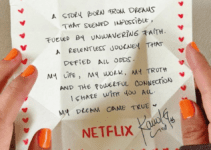 A STORY BORN FROM DREAMS
THAT SEEMED IMPOSSIBLE,
FUELED BY UNWAVERING FAITH.
A RELENTLESS JOURNEY THAT
DEFIED ALL ODDS.
MY LIFE, MY WORK, MY TRUTH
AND THE POWERFUL CONNECTION
I SHARE WITH YOU ALL.
MY DREAM CAME TRUE ♥
NETFLIX